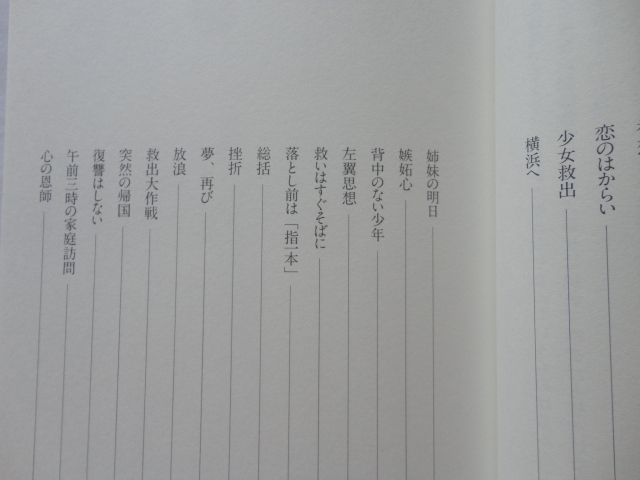 恋のはからい
少女救出
横浜へ
姉妹の明日
嫉妬心
背中のない少年
左翼思想
救いはすぐそばに
落とし前は「指一本」
総括
挫折
夢、再び
放浪
救出大作戦
突然の帰国
復讐はしない
午前三時の家庭訪問
心の恩師